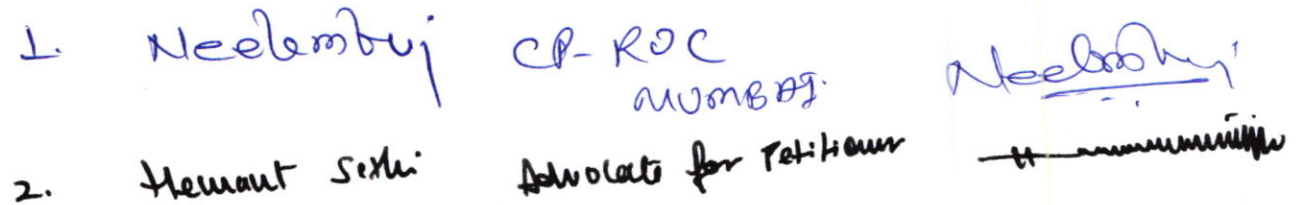 1. Neelambuj CP-ROC
MUMBAI.
2. Hemant Sethi Advocate for Petitioner